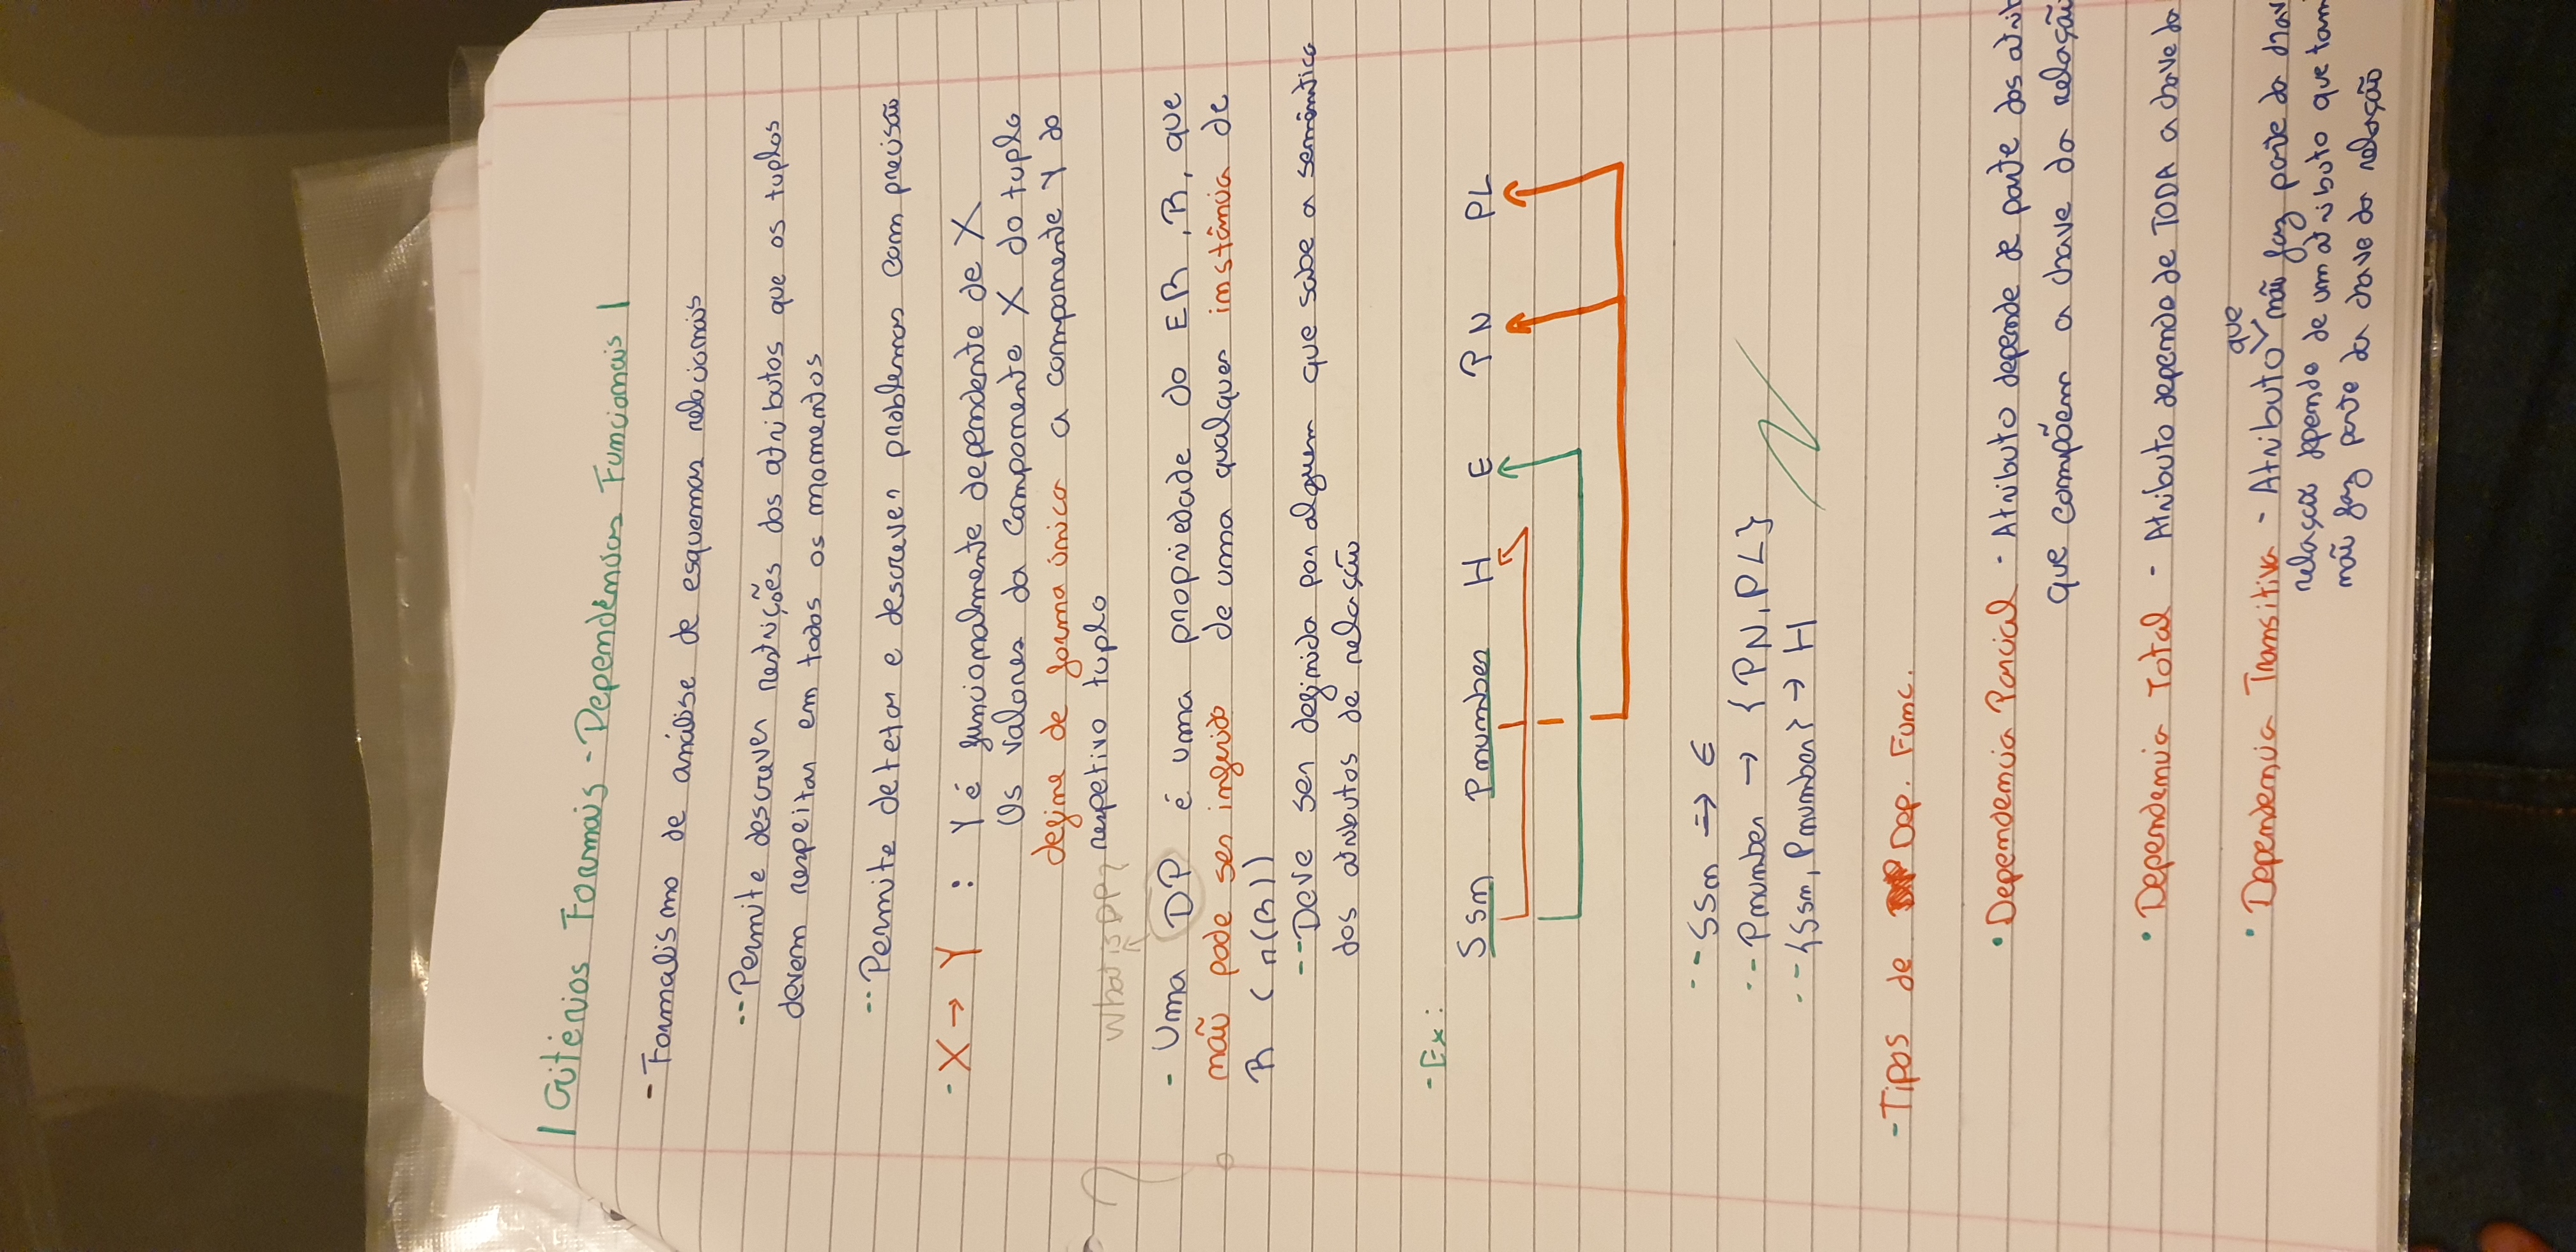 | Critérios Formais - Dependências Funcionais |
- Formalismo de análise de esquemas relacionais
-- Permite descrever restrições dos atributos que os tuplos
devem respeitar em todos os momentos
-- Permite detetar e descrever problemas com precisão
- X → Y : Y é funcionalmente dependente de X
Os valores da componente X do tuplo
define de forma única a componente Y do
What is DP? respetivo tuplo
- Uma DP é uma propriedade do ER, R, que
não pode ser inferido de uma qualquer instância de
R (r(R))
-- Deve ser definida por alguem que sabe a semântica
dos atributos de relação
- Ex:
Ssn Pnumber H E PN PL
-- Ssn => E
-- Pnumber → {PN, PL}
-- {Ssn, Pnumber} → H
- Tipos de Dep. Func.
• Dependencia Parcial - Atributo depende de parte dos atrib
que compõem a chave da relação
• Dependencia Total - Atributo depende de TODA a chave da
que
• Dependencia Transitiva - Atributo não faz parte da chav
relação depende de um atributo que tam
não faz parte da chave da relação